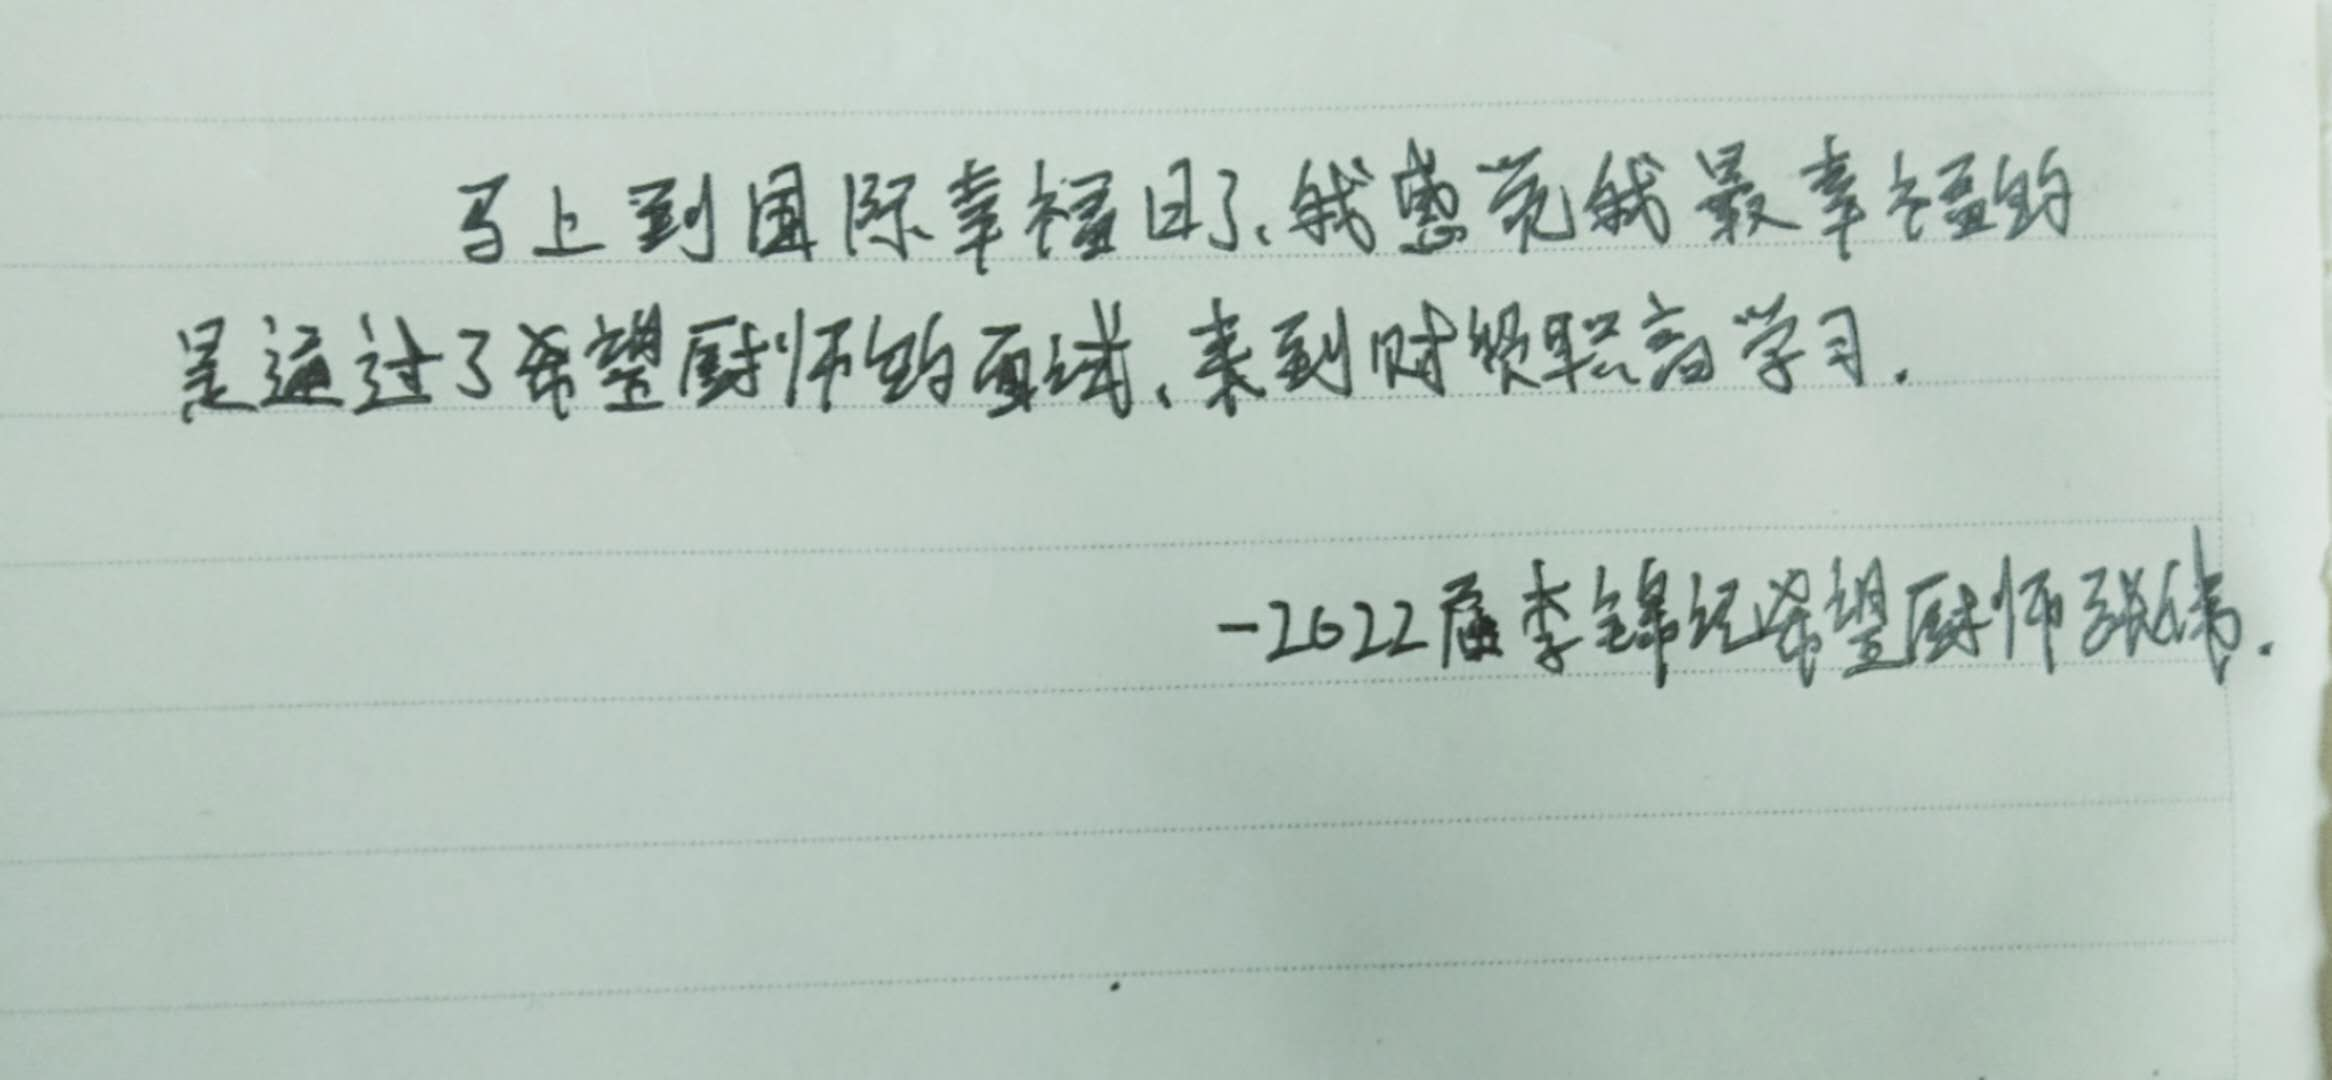 马上到国际幸福日了、我感觉我最幸福的
是通过了希望厨师的面试、来到财贸职高学习.
-2022届李锦记希望厨师张伟.